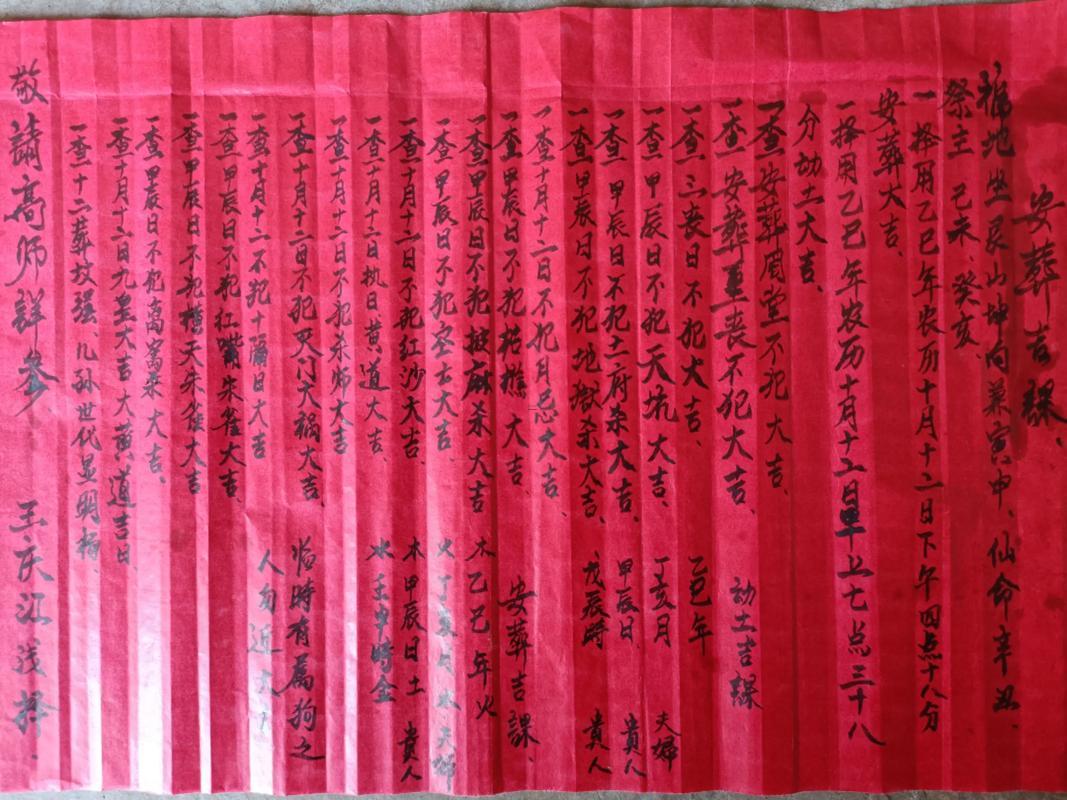 安葬吉課、
福地坐艮山坤向兼寅申、仙命辛丑、
祭主己未、癸亥、
一择用乙巳年农历十月十二日下午四点十八分
安葬大吉、
一择用乙巳年农历十月十二日早上七点三十八
分动土大吉、
一查安葬周堂不犯大吉、
一查安葬重丧不犯大吉、
一查三丧日不犯大吉、
一查甲辰日不犯天坑大吉、
一查甲辰日不犯土府杀大吉、
一查甲辰日不犯地獄杀大吉、
一查十月十二日不犯月忌大吉、
一查甲辰日不犯大吉、
一查甲辰日不犯披麻杀大吉
一查甲辰日不犯空亡大吉、
一查十月十二日不犯红沙大吉、
一查十月十二日执日黄道大吉、
一查十月十二日不犯杀师大吉
一查十月十二日不犯灭门大禍大吉、
一查十月十二不犯十隔日大吉
一查甲辰日不犯红嘴朱雀大吉、
一查甲辰日不犯横天朱雀大吉
一查甲辰日不犯大吉、
一查十月十二日九皇大吉大黄道吉日
一查十二葬坟强、儿孙世代显明楊
动土吉課
乙巳年
丁亥月 夫婦
甲辰日、貴人
戊辰時 貴人
安葬吉課、
木乙巳年火
火丁亥月水 夫婦
木甲辰日土 貴人
水壬申時金
临時有属狗之
人勿近大
敬請高师詳参 王庆江浅择、